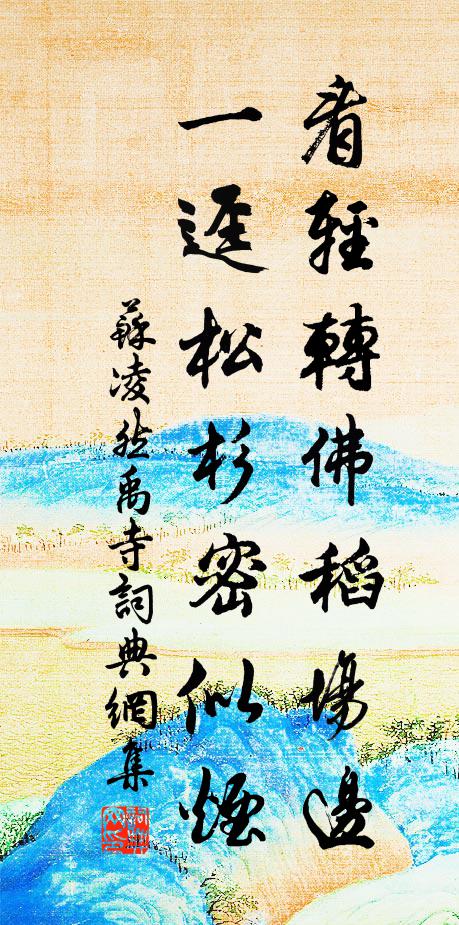 看輕轉佛稻場邊
一逕松杉密似煙
蘇凌然禹寺詞典網集